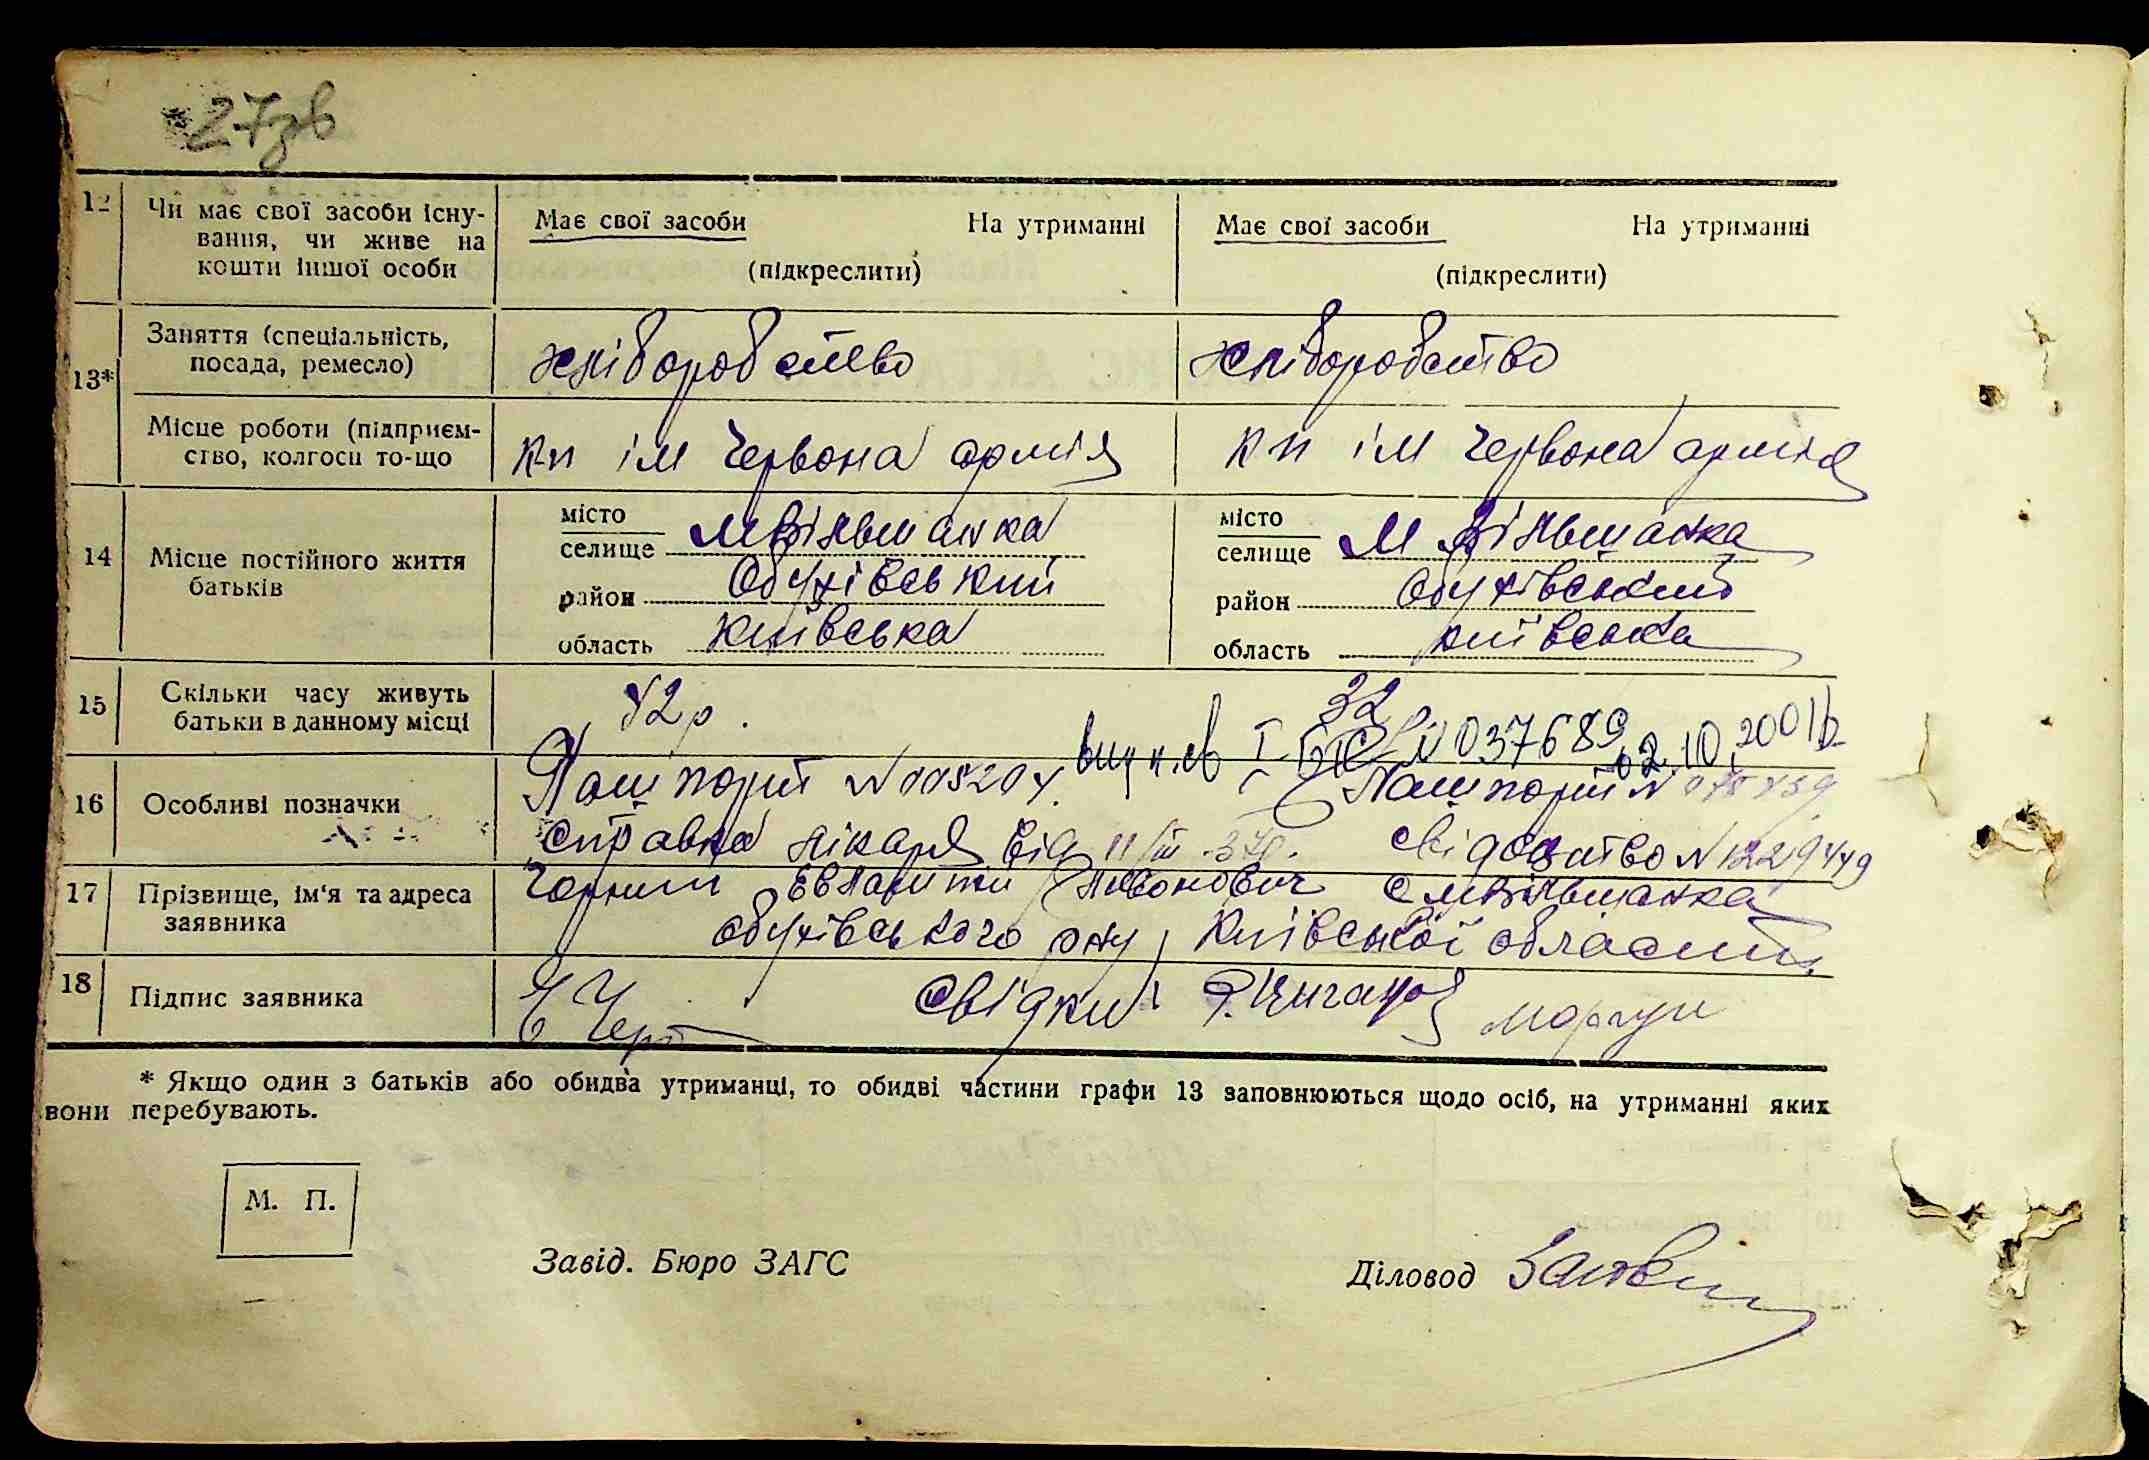 27зв
12 Чи має свої засоби існу- Має свої засоби На утриманні Має свої засоби На утриманні
вання, чи живе на
кошти іншої особи (підкреслити) (підкреслити)
13* Заняття (спеціальність,
посада, ремесло) хліборобство хліборобство
Місце роботи (підприєм-
ство, колгосп то-що к-п ім Червона армія к п ім Червона армія
14 Місце постійного життя
батьків
місто
селище М Вільшанка
район Обухівський
область Київська
місто
селище М Вільшанка
район Обухівський
область Київська
15 Скільки часу живуть
батьки в данному місці 42 р. 32
І-БК N 037689 02.10.2001р
16 Особливі позначки Пашпорт N Пашпорт N
справка лікаря від 11/ІІІ 37р. свідоцтво N 1229449
17 Прізвище, ім'я та адреса
заявника Чорний с М Вільшанка
обухівського р-ну, Київської области
18 Підпис заявника свідки: Моргун
* Якщо один з батьків або обидва утриманці, то обидві частини графи 13 заповнюються щодо осіб, на утриманні яких
вони перебувають.
М. П.
Завід. Бюро ЗАГС
Діловод